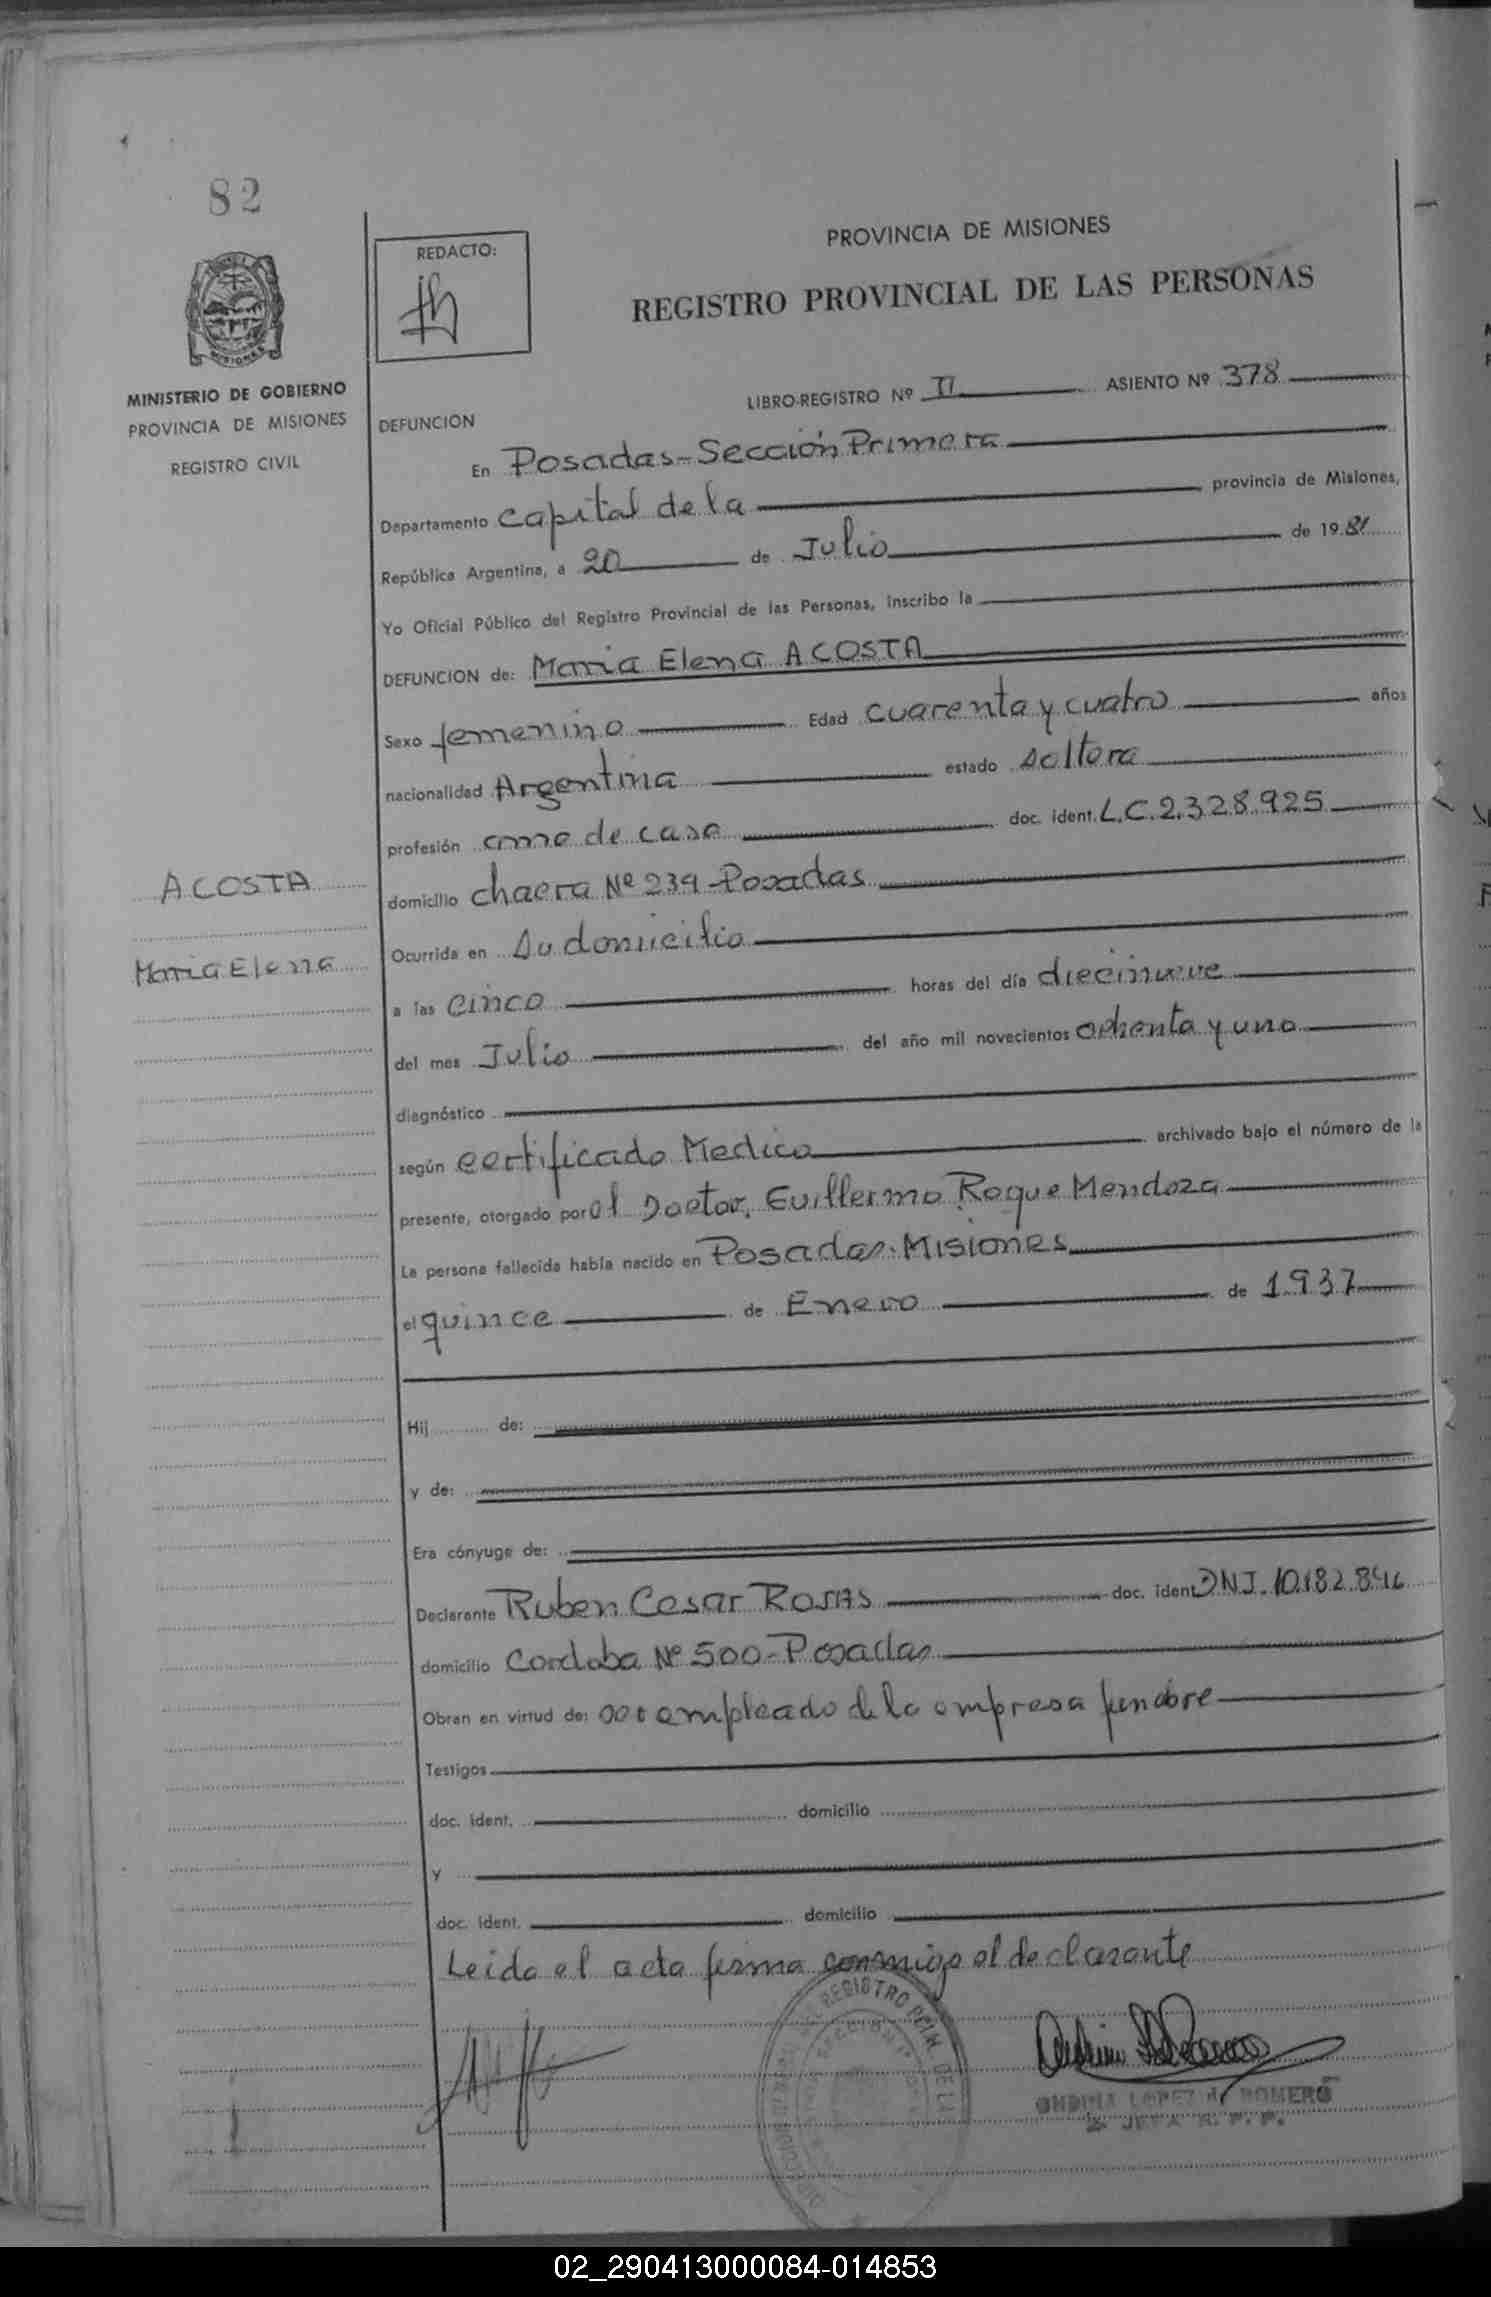 82
REDACTO:
PROVINCIA DE MISIONES
REGISTRO PROVINCIAL DE LAS PERSONAS
MISIONES
MINISTERIO DE GOBIERNO
PROVINCIA DE MISIONES
REGISTRO CIVIL
LIBRO-REGISTRO Nº II ASIENTO Nº 378
DEFUNCION
En Posadas-Sección Primera
Departamento Capital de la provincia de Misiones,
República Argentina, a 20 de Julio de 1981
Yo Oficial Público del Registro Provincial de las Personas, inscribo la
DEFUNCION de: Maria Elena ACOSTA
Sexo femenino Edad cuarenta y cuatro años
nacionalidad Argentina estado soltera
profesión ama de casa doc. ident. L.C.2.328.925
domicilio chacra Nº 239-Posadas
Ocurrida en su domicilio
a las cinco horas del día diecinueve
del mes Julio del año mil novecientos ochenta y uno
diagnóstico
según certificado Medico archivado bajo el número de la
presente, otorgado por el Doctor, Guillermo Roque Mendoza
La persona fallecida había nacido en Posadas. Misiones
el quince de Enero de 1937
Hij de:
y de:
Era cónyuge de:
Declarante Ruben Cesar ROJAS doc. ident DNI. 10.182.846
domicilio Cordoba Nº 500-Posadas
Obran en virtud de: empleado de la empresa funebre
Testigos
doc. ident. domicilio
y
doc. ident. domicilio
Leida el acta firma conmigo el declarante
ACOSTA
Maria Elena
REGISTRO PCIAL. DE LA
SECCION 1ª
ONDINA LOPEZ de ROMERO
JEFA R. P. P.
02_290413000084-014853